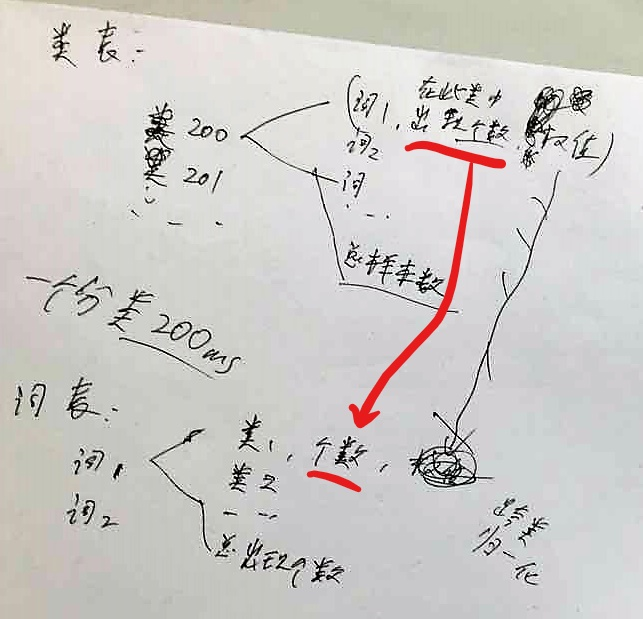 类表:
在此类中
类 200 (词1, 出现个数, 权值)
词2
类 201 词
总样本数
一个分类 200ms
词表:
类1, 个数,
词1 类2
词2
总出现个数
跨类
归一化